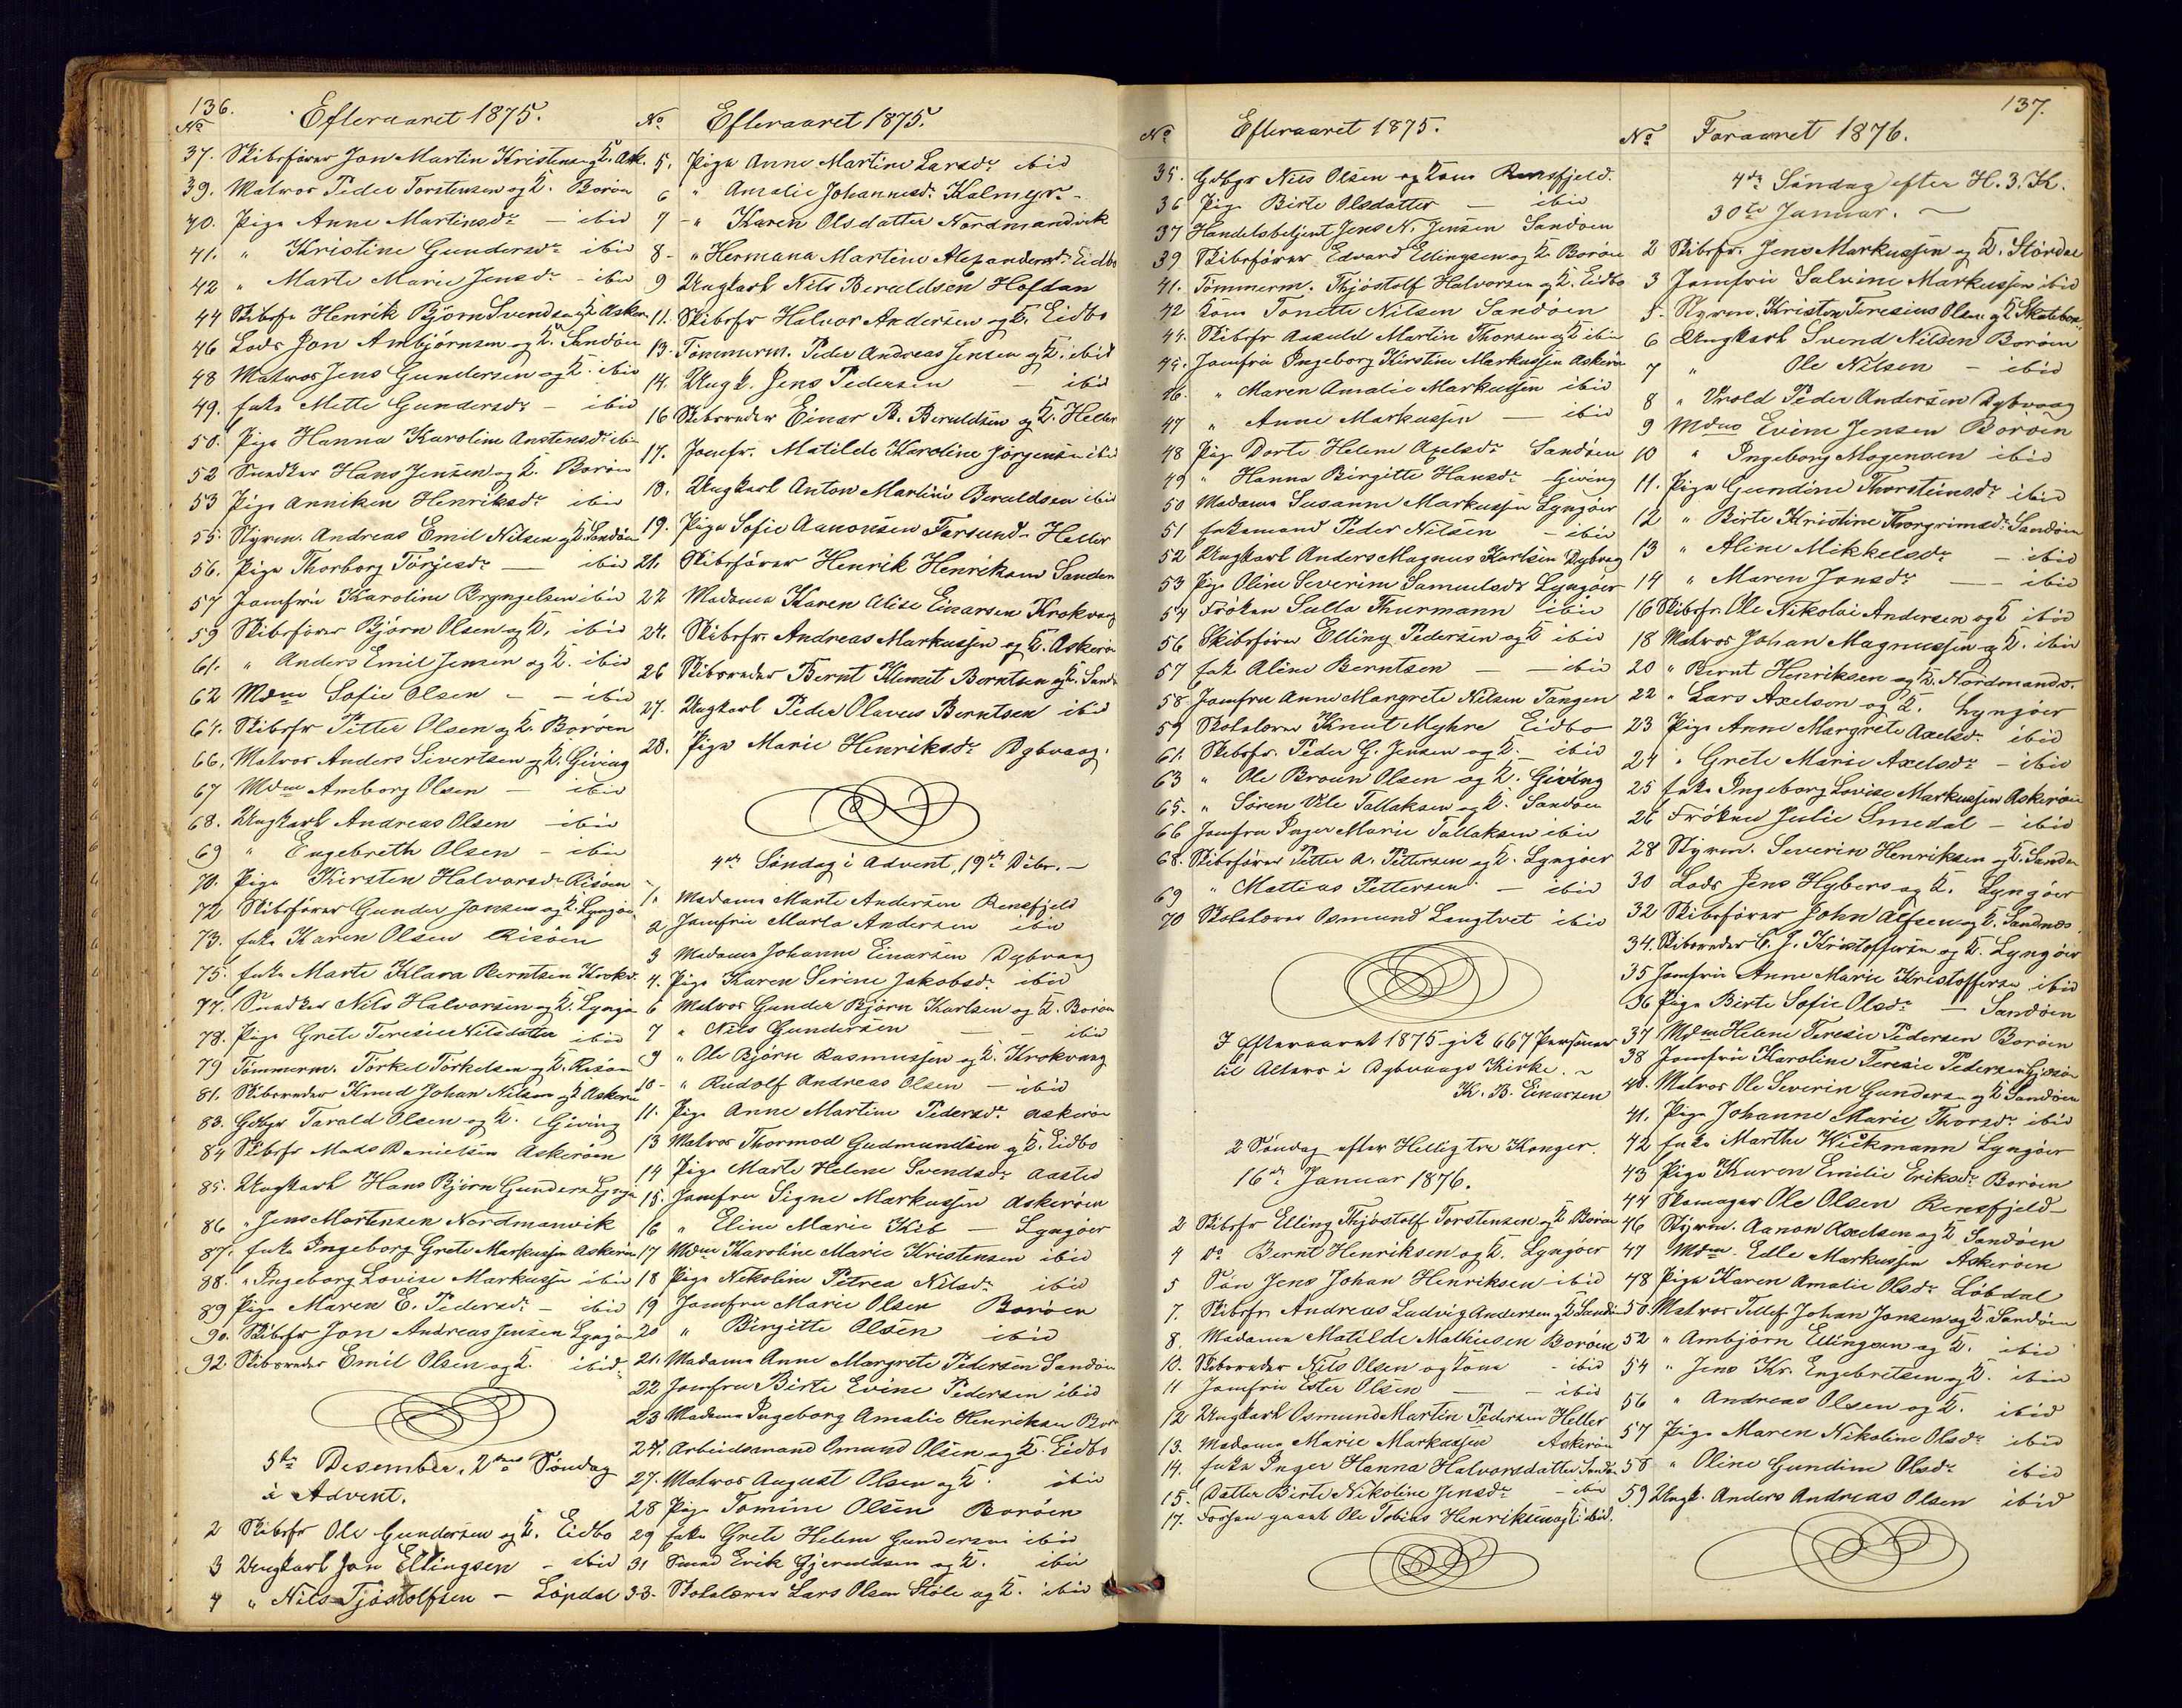 136.
No Efteraaret 1875.
37. Skibsfører Jon Martin Kristensen og K. Ask.
39. Matros Peder Torstensen og K. Borøen
40. Pige Anne Martinsdr — ibid
41. " Kristine Gundersdr ibid
42 " Marte Marie Jensdr - ibid
44 Skibsfr Henrik Bjørn Svendsen og K Askerø
46 Lods Jon Ambjørnsen og K. Sandøen
48 Matros Jens Gundersen og K. ibid
49. Enke Mette Gundersdr — ibid
50. Pige Hanna Karoline Anstensdr ibid
52 Snedker Hans Jensen og K. Borøen
53 Pige Anniken Henriksdr ibid
55. Styrm. Andreas Emil Nilsen og K Sandøen
56. Pige Thorborg Törjesdr — ibid
57 Jomfru Karoline Bryngelsen ibid
59 Skibsfører Bjørn Olsen og K. ibid
61. " Anders Emil Jensen og K. ibid
62 Mdm Sofie Olsen - - ibid
64. Skibsfr Petter Olsen og K. Borøen
66. Matros Anders Sivertsen og K. Giving
67 Mdm Amborg Olsen — ibid
68. Ungkarl Andreas Olsen ibid
69 " Engebreth Olsen - ibid
70. Pige Kirsten Halvorsdr Risøen
72 Skibsfører Gunder Jonsen og K. Lyngør
73. Enke Karen Olsen Risøen
75. Enke Marte Klara Berntsen Krokv.
77. Snedker Nils Halvorsen og K. Lyngø
78. Pige Grete Teresie Nilsdatter ibid
79 Tømmerm. Torkel Torkelsen og K. Risøen
81. Skibsreder Knud Johan Nilsen og K Askerø
83. Gdbgr Tarald Olsen og K. Giving
84 Skibsfr Mads Danielsen Askerøen
85. Ungkarl Hans Bjørn Gunders Lyngø
86 " Jens Mortensen Nordmanvik
87. Enke Ingeborg Grete Markussen Askerøen
88. " Ingeborg Lovise Markussen ibid
89 Pige Maren E. Pedersdr - ibid
90. Skibsfr Jon Andreas Jensen Lyngø
92 Skibsreder Emil Olsen og K. ibid
5te Desember, 2den Søndag
i Advent.
2 Skibsfr Ole Gundersen og K. Eidbo
3 Ungkarl Jon Ellingsen - ibid
4 " Nils Tjøstolfsen — Løpdal
No Efteraaret 1875.
5. Pige Anne Martine Larsdr ibid
6 " Amalie Johannesdr
7 - " Karen Olsdatter Nordmandvik
8 - " Hermana Martine Alexandersdr Eidbo
9 Ungkarl Nils Beraldsen Hofdan
11. Skibsfr Halvor Andersen og K. Eidbo
13. Tømmerm. Peder Andreas Jensen og K. ibid
14. Ungk. Jens Pedersen — ibid
16 Skibsreder Einar B. Beraldsen og K. Heller
17. Jomfr. Matilde Karoline Jørgensen ibid
18. Ungkarl Anton Martin Beraldsen ibid
19. Pige Sofie Aanonsen Farsund - Heller
21. Skibsfører Henrik Henriksen Sanden
22 Madama Karen Alise Einarsen Krokvaag
24. Skibsfr. Andreas Markussen og K. Askerø
26 Skibsreder Bernt Klemet Berntsen og K. Sand
27. Ungkarl Peder Olaves Berntsen ibid
28. Pige Marie Henriksdr Dybvaag.
4de Søndag i Advent, 19de Dcbr. -
1. Madama Marte Andersen Rensfjeld
2 Jomfru Marta Andersen ibid
3 Madama Johanne Einarsen Dybvaag
4. Pige Karen Serine Jakobsdr ibid
6 Matros Gunder Bjørn Karlsen og K. Borøen
7 " Nils Gundersen — — ibid
9 " Ole Bjørn Rasmussen og K. Krokvaag
10 - " Rudolf Andreas Olsen — ibid
11. Pige Anne Martine Pedersdr Askerøe
13 Matros Thormod Gudmundsen og K. Eidbo
14 Pige Marte Helene Svendsdr Aasted
15. Jomfru Signe Markussen Askerøen
16 " Eline Marie Kib — Lyngøer
17 Mdm Karoline Marie Kristensen ibid
18 Pige Nikoline Petrea Nilsdr ibid
19 Jomfru Marie Olsen Borøen
20 " Birgitte Olsen ibid
21. Madama Anne Margrete Pedersen Sandøen
22 Jomfru Birte Evine Pedersen ibid
23 Madama Ingeborg Amalie Henriksen Bor
24. Arbeidsmand Omund Olsen og K. Eidbo
27. Matros August Olsen og K. ibid
28 Pige Tomine Olsen Borøen
29 Enke Grete Helene Gundersen ibid
31 Smed Erik Gjeruldsen og K. ibid
33. Skolelærer Lars Olsen Støle og K. ibid
137.
No Efteraaret 1875.
35. Gdbgr Nils Olsen og Kone Rensfjeld.
36 Pige Birte Olsdatter — ibid
37 Handelsbetjent Jens N. Jensen Sandøen
39 Skibsfører Edvard Ellingsen og K. Borøen
41. Tømmerm. Thjøstolf Halvorsen og K. Eidbo
42 Kone Tonette Nilsen Sandøen
44. Skibsfr Aasuld Martin Thorsen og K ibid
45. Jomfru Ingeborg Kirstine Markussen Askerøen
46. " Maren Amalie Markussen ibid
47 " Anne Markussen — ibid
48 Pige Dorte Helene Axelsdr Sandøen
49 " Hanna Birgitte Hansdr Giving
50 Madama Susanne Markussen Lyngøer
51 Enkemand Peder Nilsen - ibid
52 Ungkarl Anders Magnus Karlsen Dybvag
53 Pige Oline Severine Samuelsdr Lyngøer
54 Frøken Sulla Thurmann ibid
56 Skibsfører Elling Pedersen og K ibid
57 Enke Aline Berntsen — — ibid
58. Jomfru Anne Margrete Nilsen Tangen
59 Skolelærer Knut Myhre Eidbo
61. Skibsfr. Peder G. Jensen og K. ibid
63 " Ole Broun Olsen og K. Giving
65. " Søren Vile Tallaksen og K. Sandøen
66 Jomfru Inger Marie Tallaksen ibid
68. Skibsfører Petter A. Pettersen og K. Lyngøer
69 " Mattias Pettersen — ibid
70 Skolelærer Osmund Langtvet ibid
I Efteraaret 1875 gik 667 Personer
til Alters i Dybvaags Kirke. ~
K. B. Einarsen
2 Søndag efter Hellig tre Konger.
16de Januar 1876.
2 Skibsfr Elling Thjøstolf Torstensen og K Borøen
4 Do. Bernt Henriksen og K. Lyngøer
5 Søn Jens Johan Henriksen ibid
7. Skibsfr. Andreas Ludvig Andersen og K Sandøen
8. Madama Matilde Mathisen Borøen
10. Skibsreder Nils Olsen og Kone - ibid
11 Jomfru Ester Olsen — - ibid
12 Ungkarl Osmund Martin Pedersen Heller
13. Madama Marie Markussen Askerøen
14. Enke Inger Hanna Halvorsdatter Sandøe
15. Datter Birte Nikoline Jensdr - ibid
17. Forhen gaaet Ole Tobias Henriksen og K. ibid.
No Foraaret 1876.
4de Søndag efter H. 3. K.
30te Januar. ~
2 Skibsfr. Jens Markussen og K. Stordal
3 Jomfru Salvine Markussen ibid
5. Styrm. Kristen Teresius Olsen og K
6 Ungkarl Svend Nilsen Borøen
7 " Ole Nilsen - ibid
8 " Vrold Peder Andersen Dybvaag
9 Mdme Evine Jensen Borøen
10 " Ingeborg Mogensen ibid
11. Pige Gundine Thorsteinsdr ibid
12 " Birte Kristine Thorgrimsdr Sandøen
13 " Aline Mikkelsdr — ibid
14 " Maren Jonsdr — ibid
16 Skibsfr. Ole Nikolai Andersen og K ibid
18 Matros Johan Magnussen og K. ibid
20 " Bernt Henriksen og K. Nordmandv.
22 " Lars Axelsen og K. Lyngøer
23 Pige Anne Margrete Axelsdr ibid
24 " Grete Marie Axelsdr - ibid
25 Enke Ingeborg Lovise Markussen Askerøen
26 Frøken Julie Smedal - ibid
28 Styrm. Severin Henriksen og K. Sandø
30 Lods Jens Hybers og K. Lyngøer
32 Skibsfører John Alfsen og K. Sandnes
34. Skibsreder C. J. Kristoffersen og K. Lyngøer
35 Jomfru Anne Marie Kristoffersen ibid
36 Pige Birte Sofie Olsdr — Sandøen
37 Mdm Helene Teresie Pedersen Borøen
38 Jomfru Karoline Teresie Pedersen
40. Matros Ole Severin Gunders og K Sandøen
41. Pige Johanne Marie Thorsdr ibid
42 Enke Marthe Wickmann Lyngøer
43 Pige Karen Emilie Eriksdr Borøen
44 Skomager Ole Olsen Rensfjeld
46 Styrm. Aanon Axelsen og K Sandøen
47 Mdm. Edle Markussen Askerøen
48 Pige Karen Amalie Olsdr Løbdal
50. Matros Tellef Johan Jonsen og K Sandøen
52 " Ambjørn Ellingsen og K. ibid
54 " Jens Kr. Engebretsen og K. ibid
56 " Andreas Olsen og K. ibid
57 Pige Maren Nikoline Olsdr ibid
58 " Oline Gundine Olsdr ibid
59 Ungk. Anders Andreas Olsen ibid